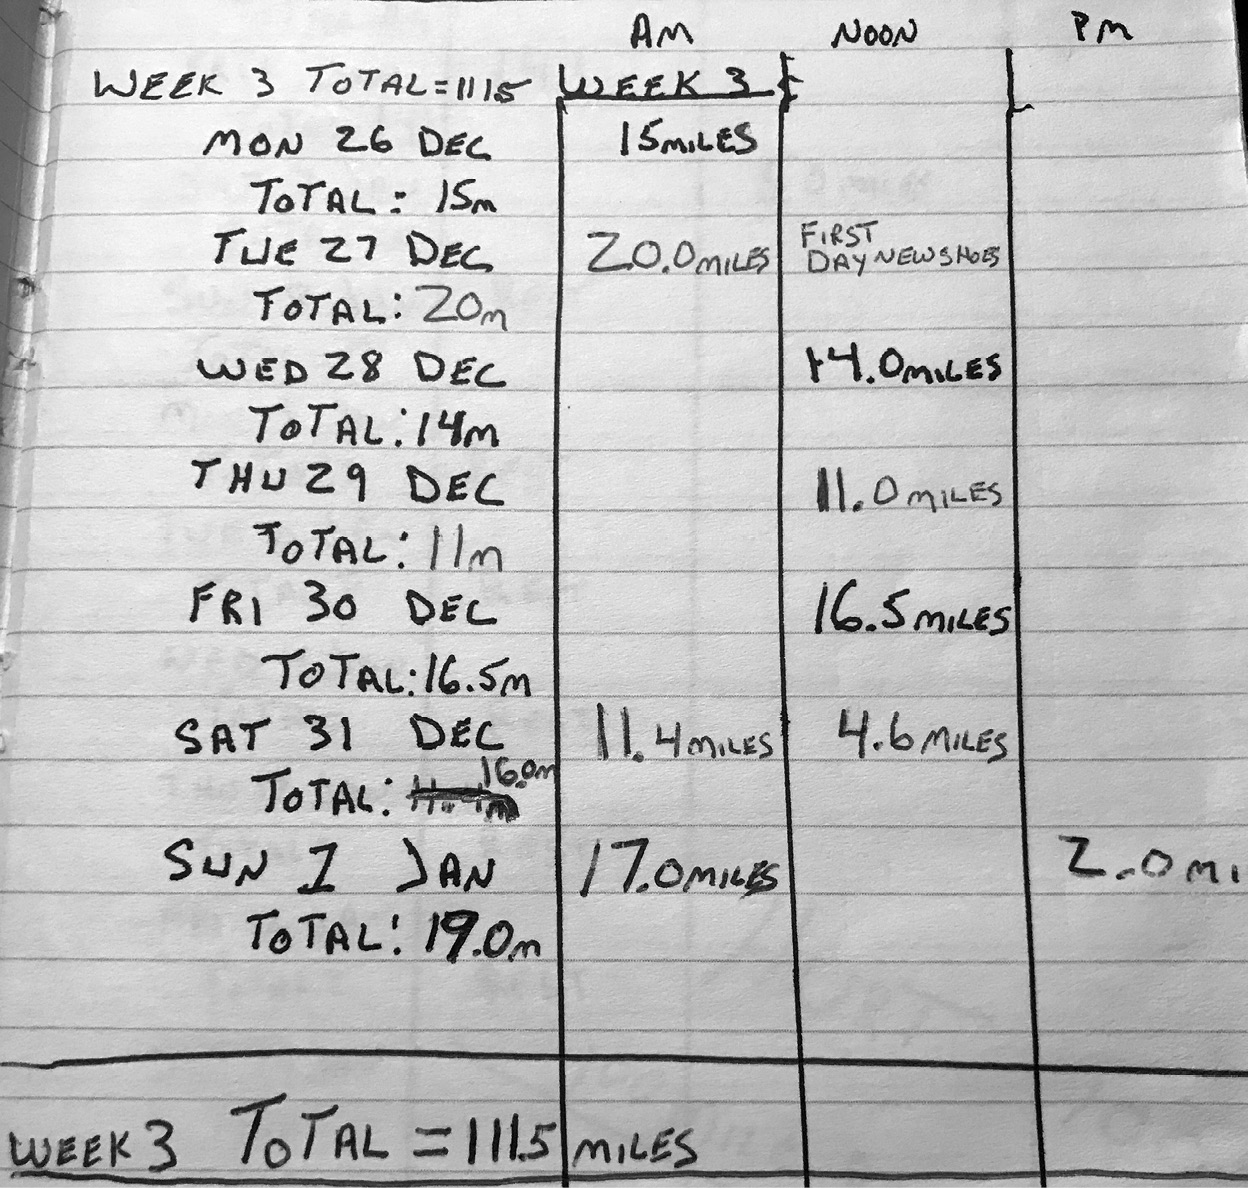 AM NOON PM
WEEK 3 TOTAL=111.5 WEEK 3
MON 26 DEC 15MILES
TOTAL: 15m
TUE 27 DEC 20.0MILES FIRST
DAY NEW SHOES
TOTAL: 20m
WED 28 DEC 14.0MILES
TOTAL: 14m
THU 29 DEC 11.0MILES
TOTAL: 11m
FRI 30 DEC 16.5MILES
TOTAL: 16.5m
SAT 31 DEC 11.4MILES 4.6MILES
TOTAL: 16.0m
SUN 1 JAN 17.0MILES 2.0MI
TOTAL: 19.0m
WEEK 3 TOTAL = 111.5 MILES